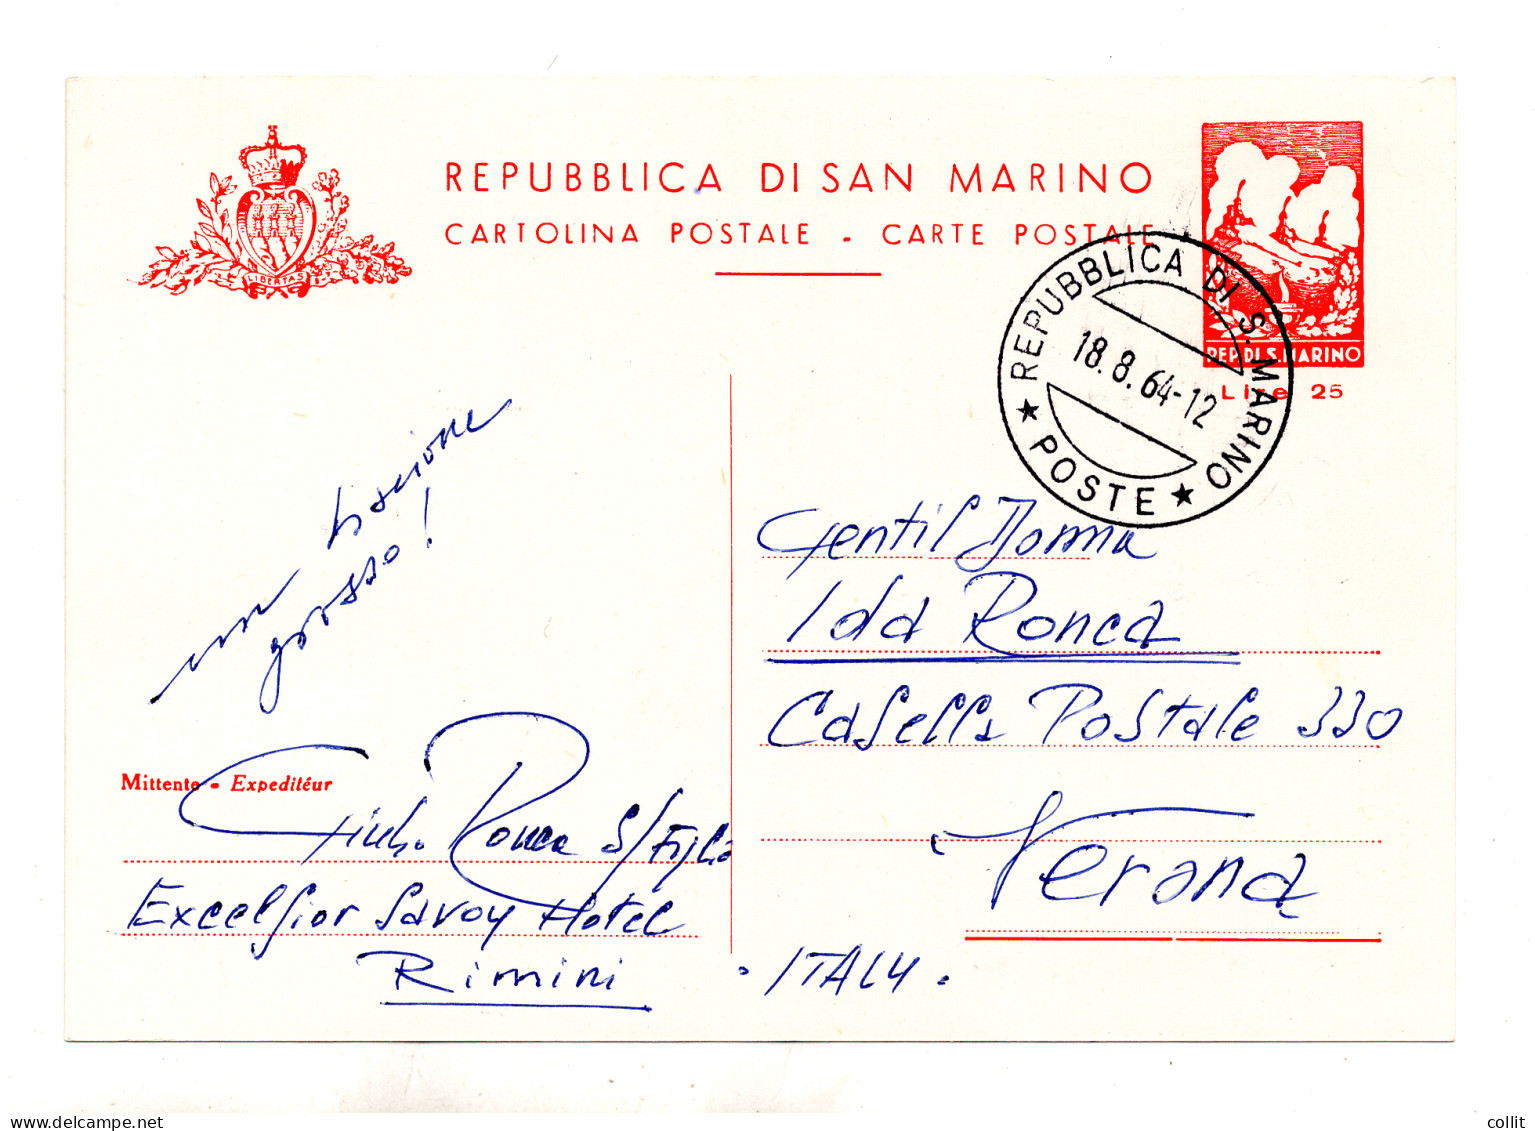 REPUBBLICA DI SAN MARINO
CARTOLINA POSTALE - CARTE POSTALE
LIBERTAS
REP. DI S. MARINO
Lire 25
REPUBBLICA DI S. MARINO
18.8.64-12
★ POSTE ★
un bacione
grosso!
Gentil Donna
Ida Ronca
Casella Postale 330
Verona
ITALY.
Mittente - Expeditéur
Giulio Ronca S/Figlio
Excelsior Savoy Hotel
Rimini
collit